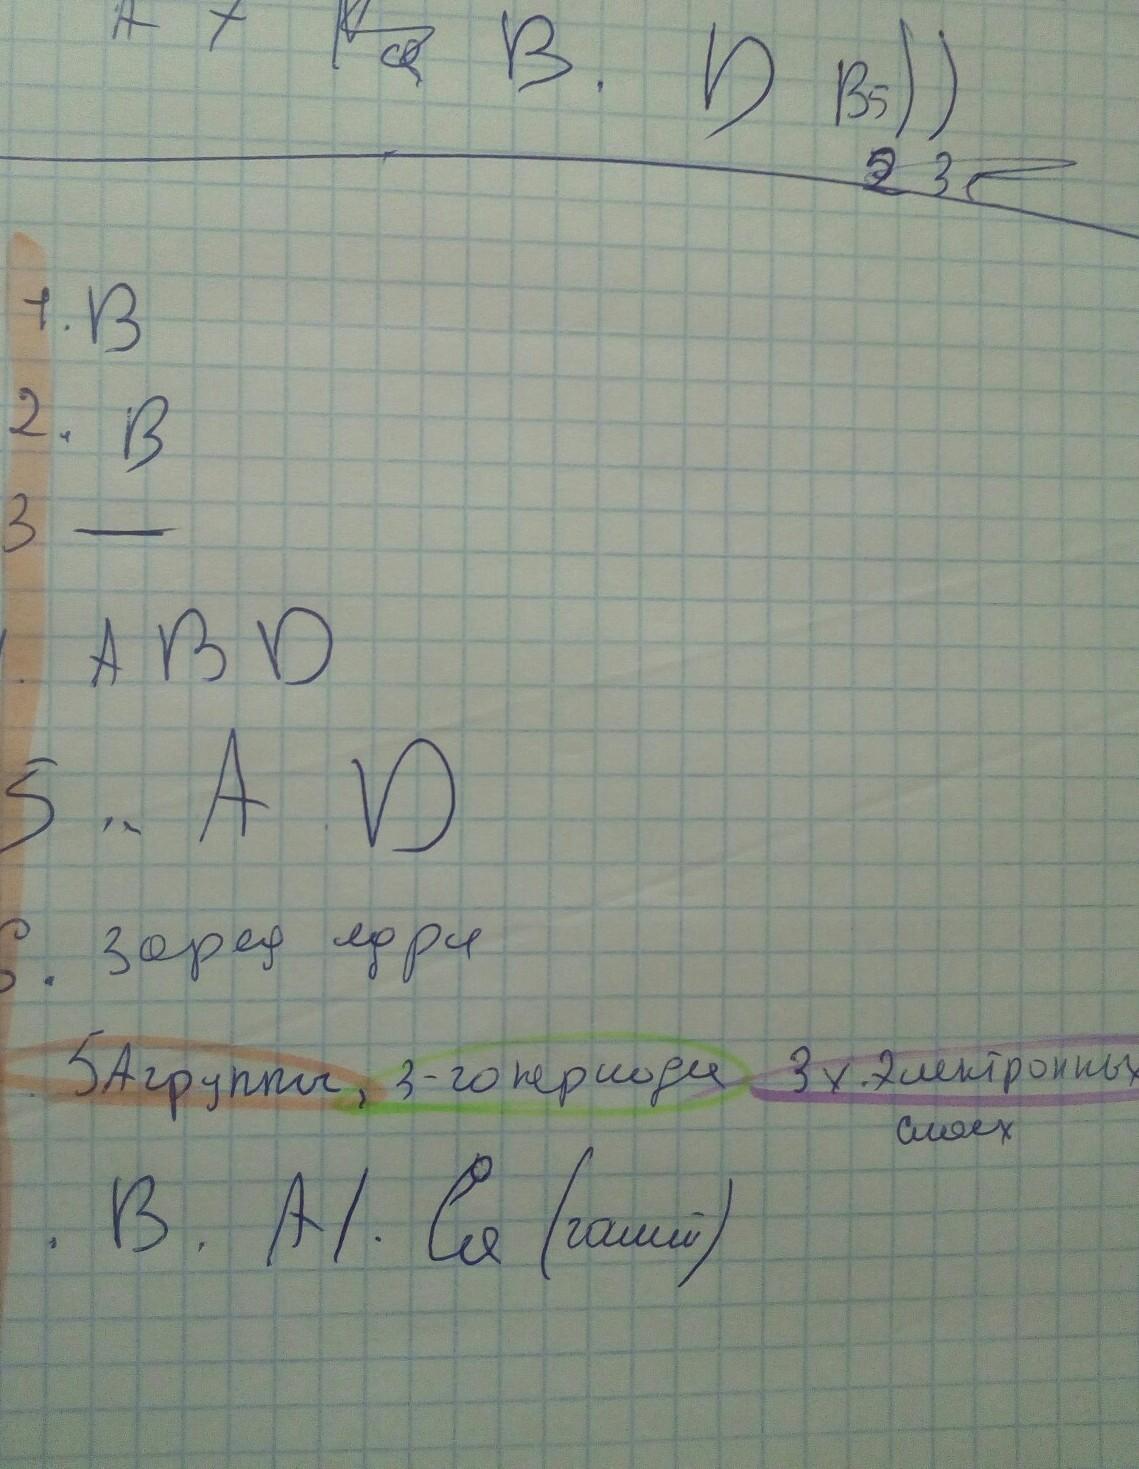 B. D B5))
2 3
1. B
2. B
3 —
. A B D
5.. A D
6. заряд ядра
5А группы, 3-го периода 3х. Электронных
слоях
. B. Al. Ga (галий)